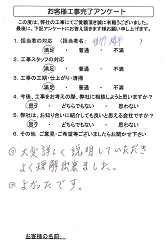 お客様工事完了アンケート
この度は、弊社の工事にてご愛顧頂き誠に有難うございました。
最後に、下記アンケートにお答え頂きます様お願い申し上げます。
1. 担当者の対応 （担当者名:
満足 ・ 普通 ・ 不満
2. 工事スタッフの対応
満足 ・ 普通 ・ 不満
3. 工事の工期・仕上がり・清掃
満足 ・ 普通 ・ 不満
4. 今後、工事をお考えの際、弊社に相談しようと思いますか？
思う ・ どちらでもない ・ 思わない
5. 弊社は、お知り合いに紹介しても良いと思える会社ですか？
思う ・ どちらでもない ・ 思わない
6. その他、ご意見・ご希望等ございましたらお聞かせ下さい
大変詳しく説明していただき
よく理解出来ました。
よかったです。
お客様のお名前: